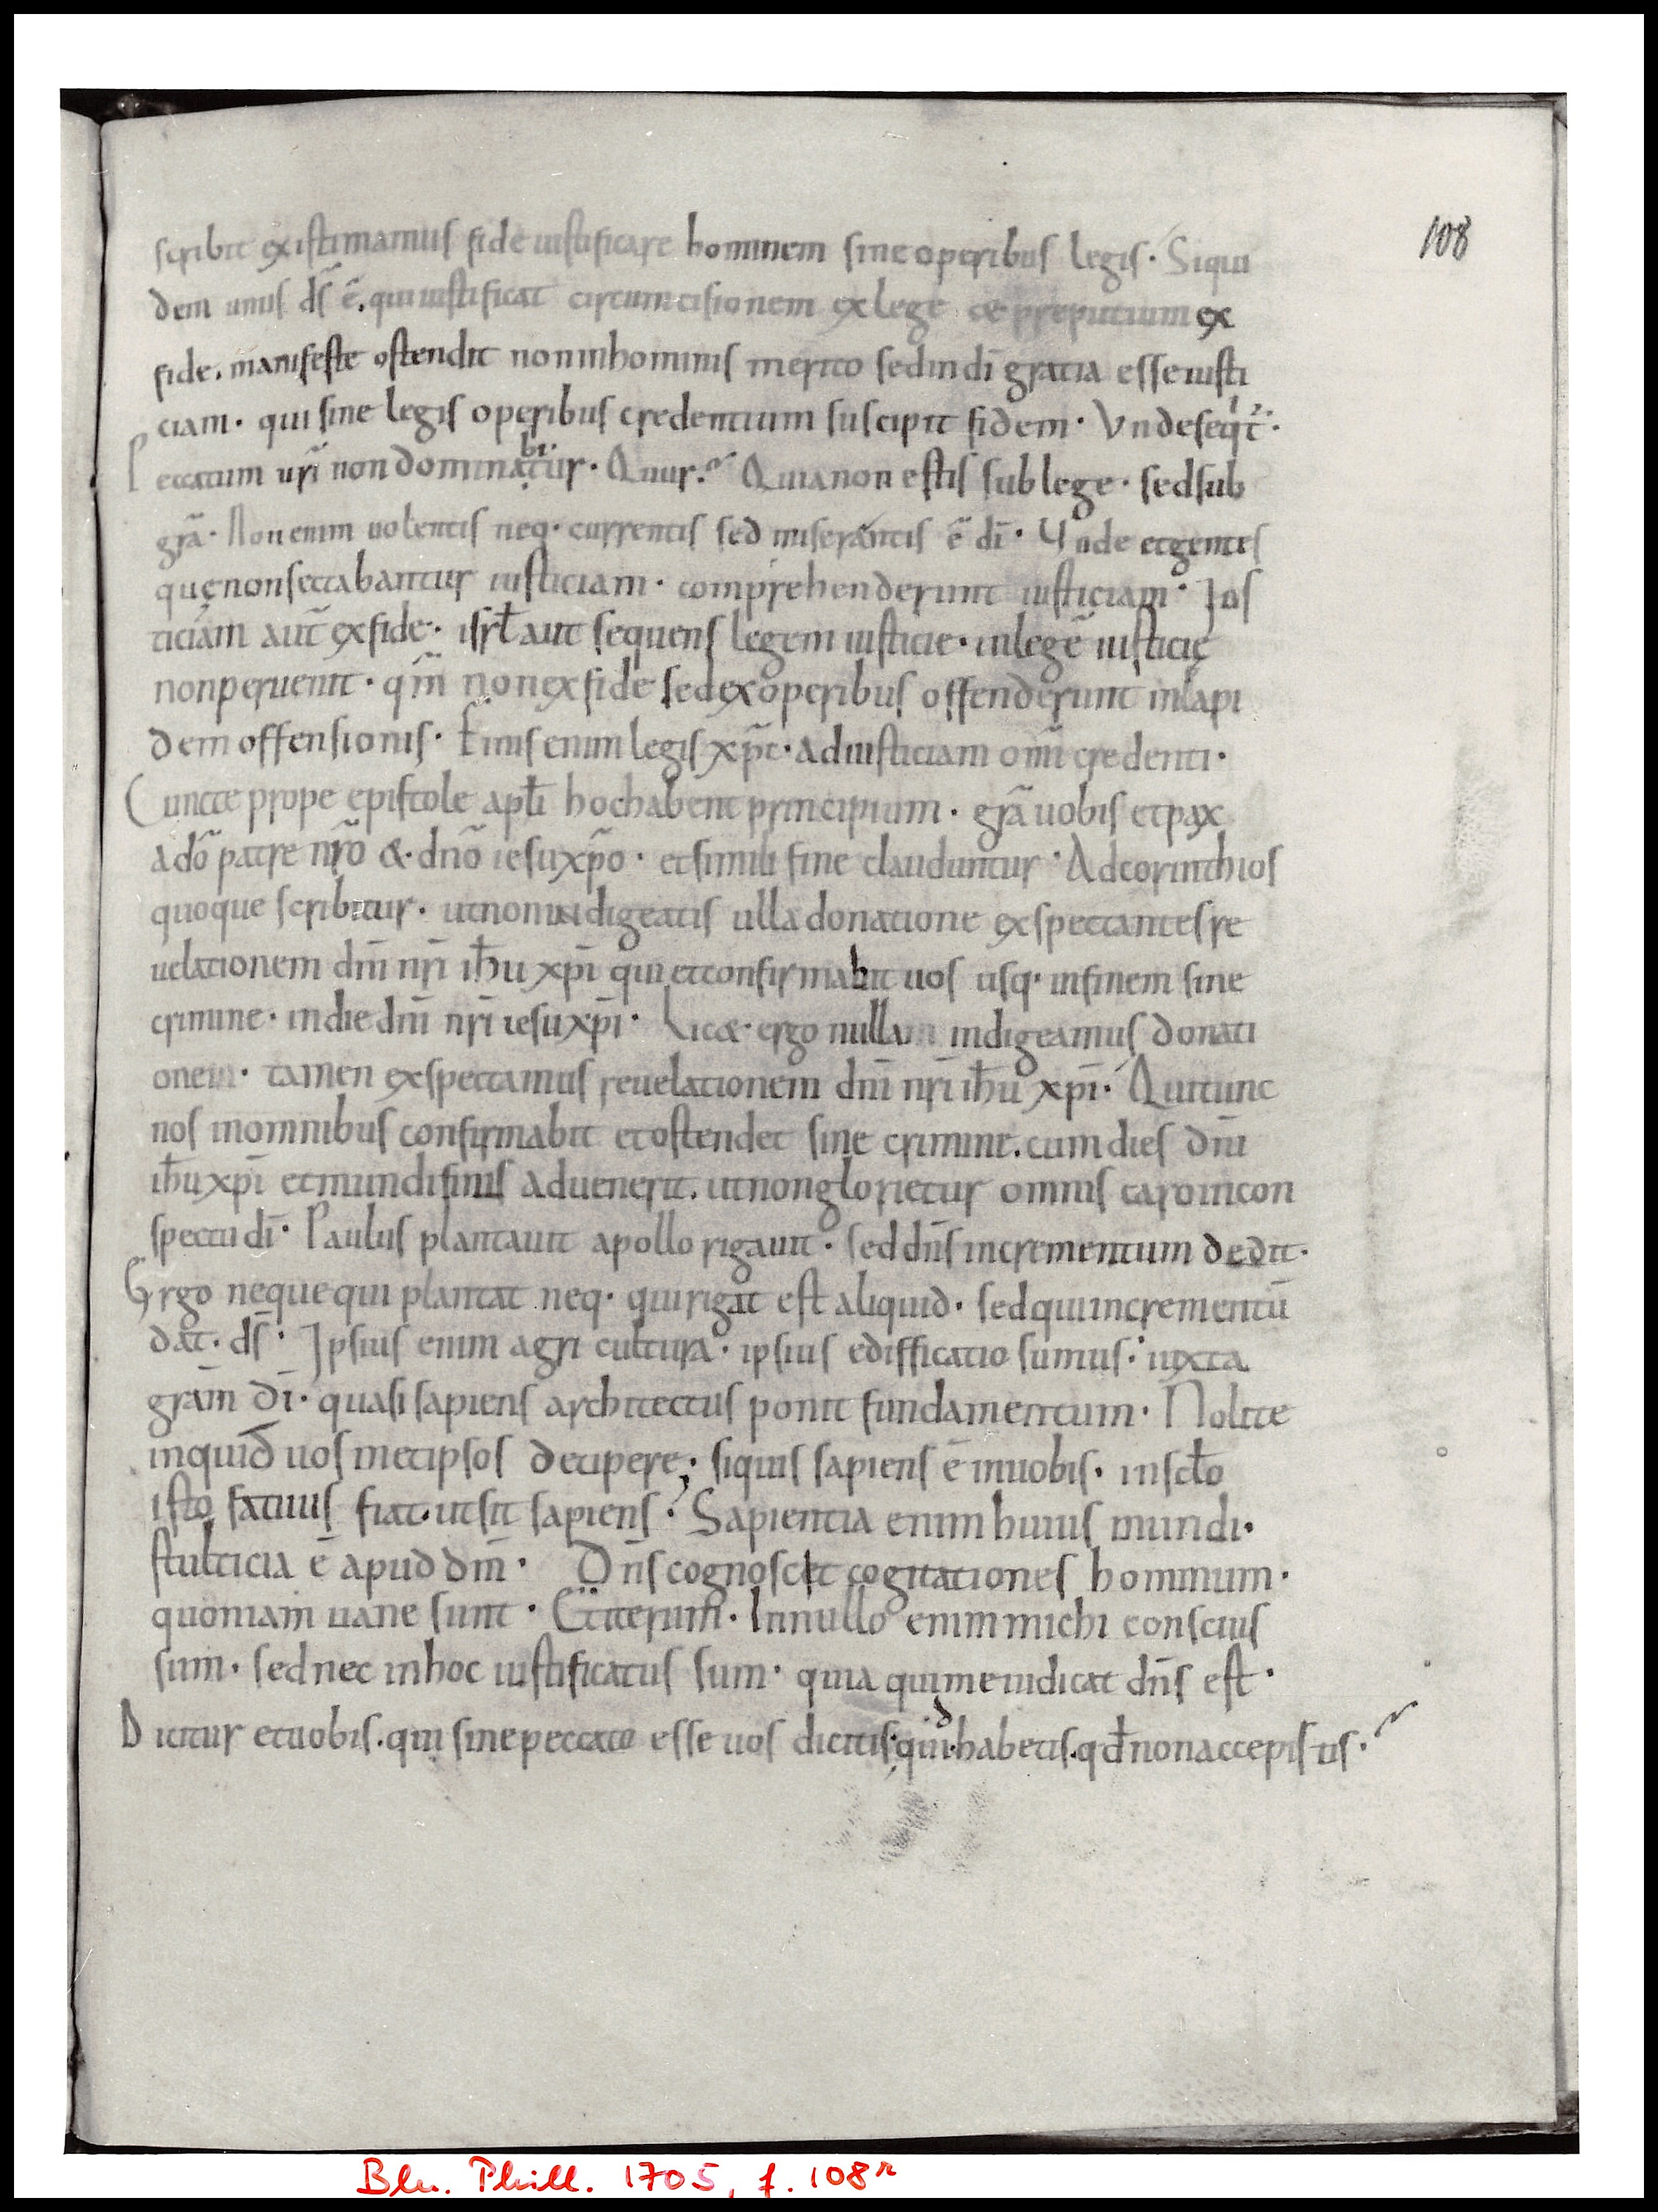 108
scribit existimamus fide iustificare hominem sine operibus legis · Siqui
dem unus d̄s ē. qui iustificat circumcisionem ex lege & preputium ex
fide. manifeste ostendit non in hominis merito sed in dī gratia esse iusti
ciam · qui sine legis operibus credentium suscipit fidem · Unde seqit̄ ·
Peccatum urī non dominabitur · Quur? Quia non estis sub lege · sed sub
grā · Non enim uolentis neq· currentis sed miserantis ē dī · Unde et gentes
quę non sectabantur iusticiam · comprehenderunt iusticiam · Ios
ticiam aut̄ ex fide · isrł aut sequens legem iusticie · in legē iusticię
non peruenit · qm̄ non ex fide sed ex operibus offenderunt in lapi
dem offensionis · Finis enim legis xp̄c · ad iusticiam omī credenti ·
Cuncte prope epistole apłi hoc habent principium · grā uobis et pax
a dō patre nr̄o & · dn̄o iesu xp̄o · et simili fine clauduntur · Ad corinthios
quoque scribitur · ut non indigeatis ulla donatione exspectantes re
uelationem dn̄i nr̄i ihū xp̄i qui et confirmabit uos usq· in finem sine
crimine · in die dn̄i nr̄i iesu xp̄i · Lic& · ergo nullam indigeamus donati
onem · tamen exspectamus reuelationem dn̄i nr̄i ihū xp̄i · Qui tunc
nos in omnibus confirmabit et ostendet sine crimine. cum dies dn̄i
ihū xp̄i et mundi finis aduenerit. ut non glorietur omnis caro in con
spectu dī · Paulus plantauit apollo rigauit · sed dn̄s incrementum dedit ·
Ergo neque qui plantat neq· qui rigat est aliquid · sed qui incrementū
dat · d̄s · Ipsius enim agri cultura · ipsius edifficatio sumus · iuxta
grām dī · quasi sapiens architectus ponit fundamentum · Nolite
inquid uos metipsos decipere; · siquis sapiens ē in uobis · in scło
isto fatuus fiat · ut sit sapiens · Sapientia enim huius mundi ·
stulticia ē apud dm̄ · Dn̄s cognoscit cogitationes hominum ·
quoniam uane sunt · Et iterum · In nullo enim michi conscius
sum · sed nec in hoc iustificatus sum · quia qui me iudicat dn̄s est ·
Dicitur et uobis. qui sine peccato esse uos dicitis · quid · habetis. qđ non accepistis ·
Bln. Phill. 1705, f. 108r